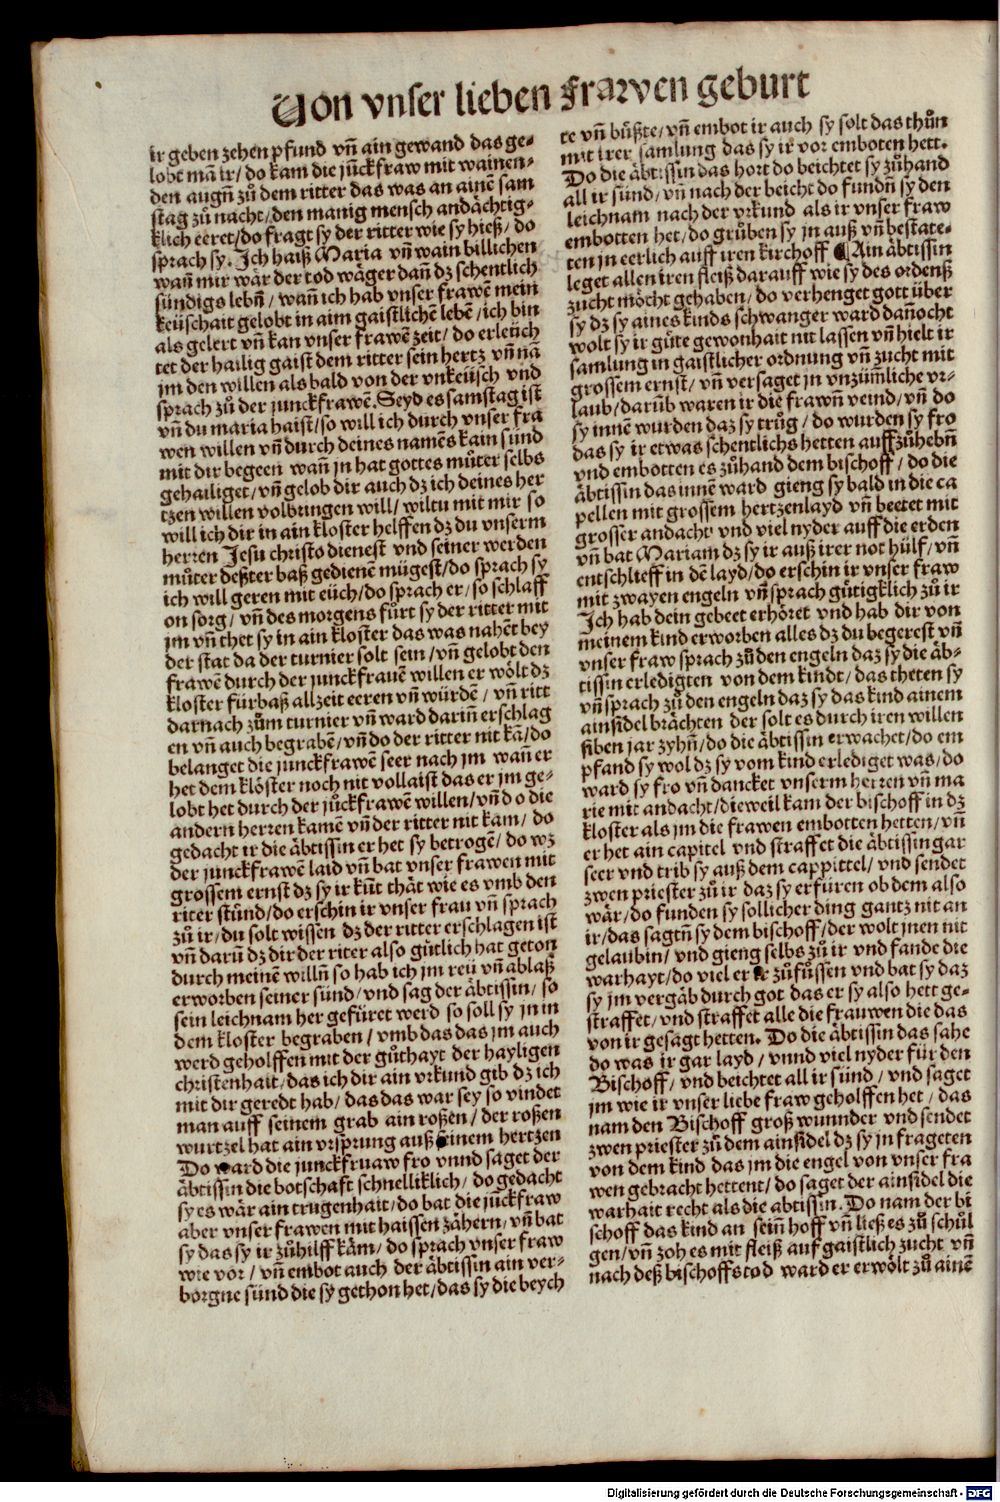 Von vnser lieben frawen geburt
ir geben zehen pfund vñ ain gewand das ge-
lobt mā ir/do kam die jūckfraw mit wainen-
den augñ zů dem ritter das was an ainē sam
stag zů nacht/den manig mensch andächtig-
klich eeret/do fragt sy der ritter wie sy hieß/do
sprach sy. Ich haiß Maria vñ wain billichen
wañ mir wär der tod wäger dañ dz schentlich
sündigs lebñ/wañ ich hab vnser frawē mein
keüschait gelobt in aim gaistlichē lebē/ich bin
als gelert vñ kan vnser frawē zeit/do erleüch
tet der hailig gaist dem ritter sein hertz vñ nā
jm den willen als bald von der vnkeüsch vnd
sprach zů der junckfrawē. Seyd es samstag ist
vñ du maria haist/so will ich durch vnser fra
wen willen vñ durch deines namēs kain sünd
mit dir begeen wañ jn hat gottes můter selbs
gehailiget/vñ gelob dir auch dz ich deines her
tzen willen volbringen will/wiltu mit mir so
will ich dir in ain kloster helffen dz du vnserm
herren Jesu christo dienest vnd seiner werden
můter deßter baß gedienē mügest/do sprach sy
ich will geren mit eüch/do sprach er/so schlaff
on sorg/vñ des morgens fůrt sy der ritter mit
jm vñ thet sy in ain kloster das was nahēt bey
der stat da der turnier solt sein/vñ gelobt den
frawē durch der junckfrauē willen er wölt dz
kloster fürbaß allzeit eeren vñ würdē/vñ ritt
darnach zům turnier vñ ward dariñ erschlag
en vñ auch begrabē/vñ do der ritter nit kā/do
belanget die junckfrawē seer nach jm wañ er
het dem klöster noch nit vollaist das er jm ge-
lobt het durch der jůckfrawē willen/vñ do die
andern herren kamē vñ der ritter nit kam/do
gedacht ir die äbtissin er het sy betrogē/do wz
der junckfrawē laid vñ bat vnser frawen mit
grossem ernst dz sy ir kūt thät wie es vmb den
riter stünd/do erschin ir vnser frau vñ sprach
zů ir/du solt wissen dz der ritter erschlagen ist
vñ darū dz dir der riter also gütlich hat geton
durch meinē willñ so hab ich jm reü vñ ablaß
erworben seiner sünd/vnd sag der äbtissin/so
sein leichnam her gefüret werd so soll sy jn in
dem kloster begraben/vmb das das jm auch
werd geholffen mit der gůthayt der hayligen
christenhait/das ich dir ain vrkund gib dz ich
mit dir geredt hab/das das war sey so vindet
man auff seinem grab ain roßen/der roßen
wurtzel hat ain vrsprung auß seinem hertzen
Do ward die junckfruaw fro vnnd saget der
äbtissin die botschaft schnelliklich/do gedacht
sy es wär ain trugenhait/do bat die jūckfraw
aber vnser frawen mit haissen zähern/vñ bat
sy das sy ir zůhilff käm/do sprach vnser fraw
wie vor/vñ embot auch der äbtissin ain ver-
borgne sünd die sy gethon het/das sy die beych
te vñ bůßte/vñ embot ir auch sy solt das thůn
mit irer samlung das sy ir vor emboten hett.
Do die äbtissin das hort do beichtet sy zůhand
all ir sünd/vñ nach der beicht do fundñ sy den
leichnam nach der vrkund als ir vnser fraw
embotten het/do grůben sy jn auß vñ bestate-
ten jn eerlich auff iren kirchoff ¶Ain äbtissin
leget allen iren fleiß darauff wie sy des ordenß
zucht möcht gehaben/do verhenget gott über
sy dz sy aines kinds schwanger ward dañocht
wolt sy ir gůte gewonhait nit lassen vñ hielt ir
samlung in gaistlicher ordnung vñ zucht mit
grossem ernst/vñ versaget jn vnzüm̄liche vr-
laub/darūb waren ir die frawñ veind/vñ do
sy innē wurden daz sy trůg/do wurden sy fro
das sy ir etwas schentlichs hetten auffzůhebñ
vnd embotten es zůhand dem bischoff/do die
äbtissin das innē ward gieng sy bald in die ca
pellen mit grossem hertzenlayd vñ beetet mit
grosser andacht vnd viel nyder auff die erden
vñ bat Mariam dz sy ir auß irer not hülf/vñ
entschlieff in dē layd/do erschin ir vnser fraw
mit zwayen engeln vñ sprach gütigklich zů ir
Ich hab dein gebeet erhöret vnd hab dir von
meinem kind erworben alles dz du begerest vñ
vnser fraw sprach zů den engeln daz sy die äb-
tissin erledigten von dem kindt/das theten sy
vñ sprach zů den engeln daz sy das kind ainem
ainsidel brächten der solt es durch iren willen
siben jar zyhñ/do die äbtissin erwachet/do em
pfand sy wol dz sy vom kind erlediget was/do
ward sy fro vñ dancket vnserm herren vñ ma
rie mit andacht/dieweil kam der bischoff in dz
kloster als jm die frawen embotten hetten/vñ
er het ain capitel vnd straffet die äbtissin gar
seer vnd trib sy auß dem cappittel/vnd sendet
zwen priester zů ir daz sy erfüren ob dem also
wär/do funden sy sollicher ding gantz nit an
ir/das sagtñ sy dem bischoff/der wolt jnen nit
gelaubin/vnd gieng selbs zů ir vnd fande die
warhayt/do viel er ir zůfůssen vnd bat sy daz
sy jm vergäb durch got das er sy also hett ge-
straffet/vnd straffet alle die frauwen die das
von ir gesagt hetten. Do die äbtissin das sahe
do was ir gar layd/vnnd viel nyder für den
Bischoff/vnd beichtet all ir sünd/vnd saget
jm wie ir vnser liebe fraw geholffen het/das
nam den Bischoff groß wunnder vnd sendet
zwen priester zů dem ainsidel dz sy jn frageten
von dem kind das jm die engel von vnser fra
wen gebracht hettent/do saget der ainsidel die
warhait recht als die abtissin. Do nam der bi
schoff das kind an seiñ hoff vñ ließ es zů schůl
gen/vñ zoh es mit fleiß auf gaistlich zucht vñ
nach deß bischoffs tod ward er erwölt zů ainē
Digitalisierung gefördert durch die Deutsche Forschungsgemeinschaft - DFG